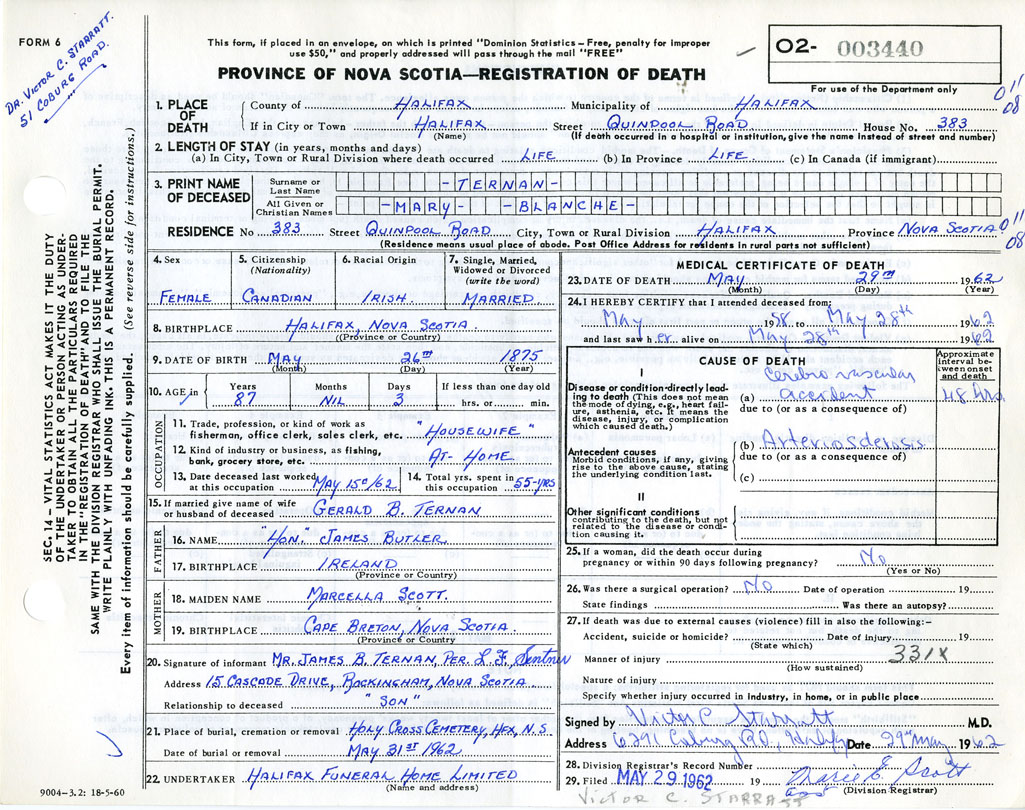 FORM 6
DR. VICTOR C. STARRATT.
51 COBURG ROAD.
This form, if placed in an envelope, on which is printed "Dominion Statistics - Free, penalty for improper
use $50," and properly addressed will pass through the mail "FREE"
O2- 003440
PROVINCE OF NOVA SCOTIA—REGISTRATION OF DEATH
For use of the Department only
011
08
1. PLACE OF DEATH
County of HALIFAX Municipality of HALIFAX
If in City or Town HALIFAX Street QUINPOOL ROAD. House No. 383
(Name) (If death occurred in a hospital or institution, give the name instead of street and number)
2. LENGTH OF STAY (in years, months and days)
(a) In City, Town or Rural Division where death occurred LIFE (b) In Province LIFE. (c) In Canada (if immigrant)
3. PRINT NAME OF DECEASED
Surname or Last Name -TERNAN-
All Given or Christian Names -MARY- -BLANCHE-
RESIDENCE No 383 Street QUINPOOL ROAD City, Town or Rural Division HALIFAX Province NOVA SCOTIA
011
08
(Residence means usual place of abode. Post Office Address for residents in rural parts not sufficient)
SEC. 14 - VITAL STATISTICS ACT MAKES IT THE DUTY
OF THE UNDERTAKER OR PERSON ACTING AS UNDER-
TAKER TO OBTAIN ALL THE PARTICULARS REQUIRED
IN THE "REGISTRATION OF DEATH" AND FILE THE
SAME WITH THE DIVISION REGISTRAR WHO SHALL ISSUE THE BURIAL PERMIT.
WRITE PLAINLY WITH UNFADING INK. THIS IS A PERMANENT RECORD.
Every item of information should be carefully supplied. (See reverse side for instructions.)
4. Sex FEMALE
5. Citizenship (Nationality) CANADIAN
6. Racial Origin IRISH.
7. Single, Married, Widowed or Divorced (write the word) MARRIED.
8. BIRTHPLACE HALIFAX, NOVA SCOTIA.
(Province or Country)
9. DATE OF BIRTH MAY 26TH 1875
(Month) (Day) (Year)
10. AGE in Years 87 Months NIL Days 3 If less than one day old hrs. or min.
OCCUPATION
11. Trade, profession, or kind of work as
fisherman, office clerk, sales clerk, etc. "HOUSEWIFE"
12. Kind of industry or business, as fishing,
bank, grocery store, etc. AT- HOME
13. Date deceased last worked at this occupation MAY 15TH/62
14. Total yrs. spent in this occupation 55-YRS
15. If married give name of wife
or husband of deceased GERALD B. TERNAN
FATHER
16. NAME "HON." JAMES BUTLER
17. BIRTHPLACE IRELAND
(Province or Country)
MOTHER
18. MAIDEN NAME MARCELLA SCOTT.
19. BIRTHPLACE CAPE BRETON, NOVA SCOTIA.
(Province or Country)
20. Signature of informant MR. JAMES B. TERNAN, PER. L.F.
Address 15 CASCADE DRIVE, ROCKINGHAM, NOVA SCOTIA
Relationship to deceased "SON"
21. Place of burial, cremation or removal HOLY CROSS CEMETERY, HFX, N.S
Date of burial or removal MAY 31ST 1962
22. UNDERTAKER HALIFAX FUNERAL HOME LIMITED
(Name and address)
9004-3.2: 18-5-60
MEDICAL CERTIFICATE OF DEATH
23. DATE OF DEATH May 29th 1962
(Month) (Day) (Year)
24. I HEREBY CERTIFY that I attended deceased from:
May 1958 to May 28th 1962
and last saw her alive on May 28th 1962
CAUSE OF DEATH
Approximate interval between onset and death
I
Disease or condition-directly lead-
ing to death (This does not mean
the mode of dying, e.g., heart fail-
ure, asthenia, etc. It means the
disease, injury, or complication
which caused death.)
Cerebro vascular
(a) accident 48 hrs
due to (or as a consequence of)
Antecedent causes
Morbid conditions, if any, giving
rise to the above cause, stating
the underlying condition last.
(b) Arteriosclerosis
due to (or as a consequence of)
(c)
II
Other significant conditions
contributing to the death, but not
related to the disease or condi-
tion causing it.
25. If a woman, did the death occur during
pregnancy or within 90 days following pregnancy? No
(Yes or No)
26. Was there a surgical operation? No Date of operation 19
State findings Was there an autopsy?
27. If death was due to external causes (violence) fill in also the following:-
Accident, suicide or homicide? Date of injury 19
(State which)
Manner of injury 331X
(How sustained)
Nature of injury
Specify whether injury occurred in Industry, in home, or in public place
Signed by Victor C. Starratt M.D.
Address 6291 Coburg RD, Hfx Date 29th May 1962
28. Division Registrar's Record Number
29. Filed MAY 29 1962 19 Marie E. Scott
(Division Registrar)
VICTOR C. STARRATT